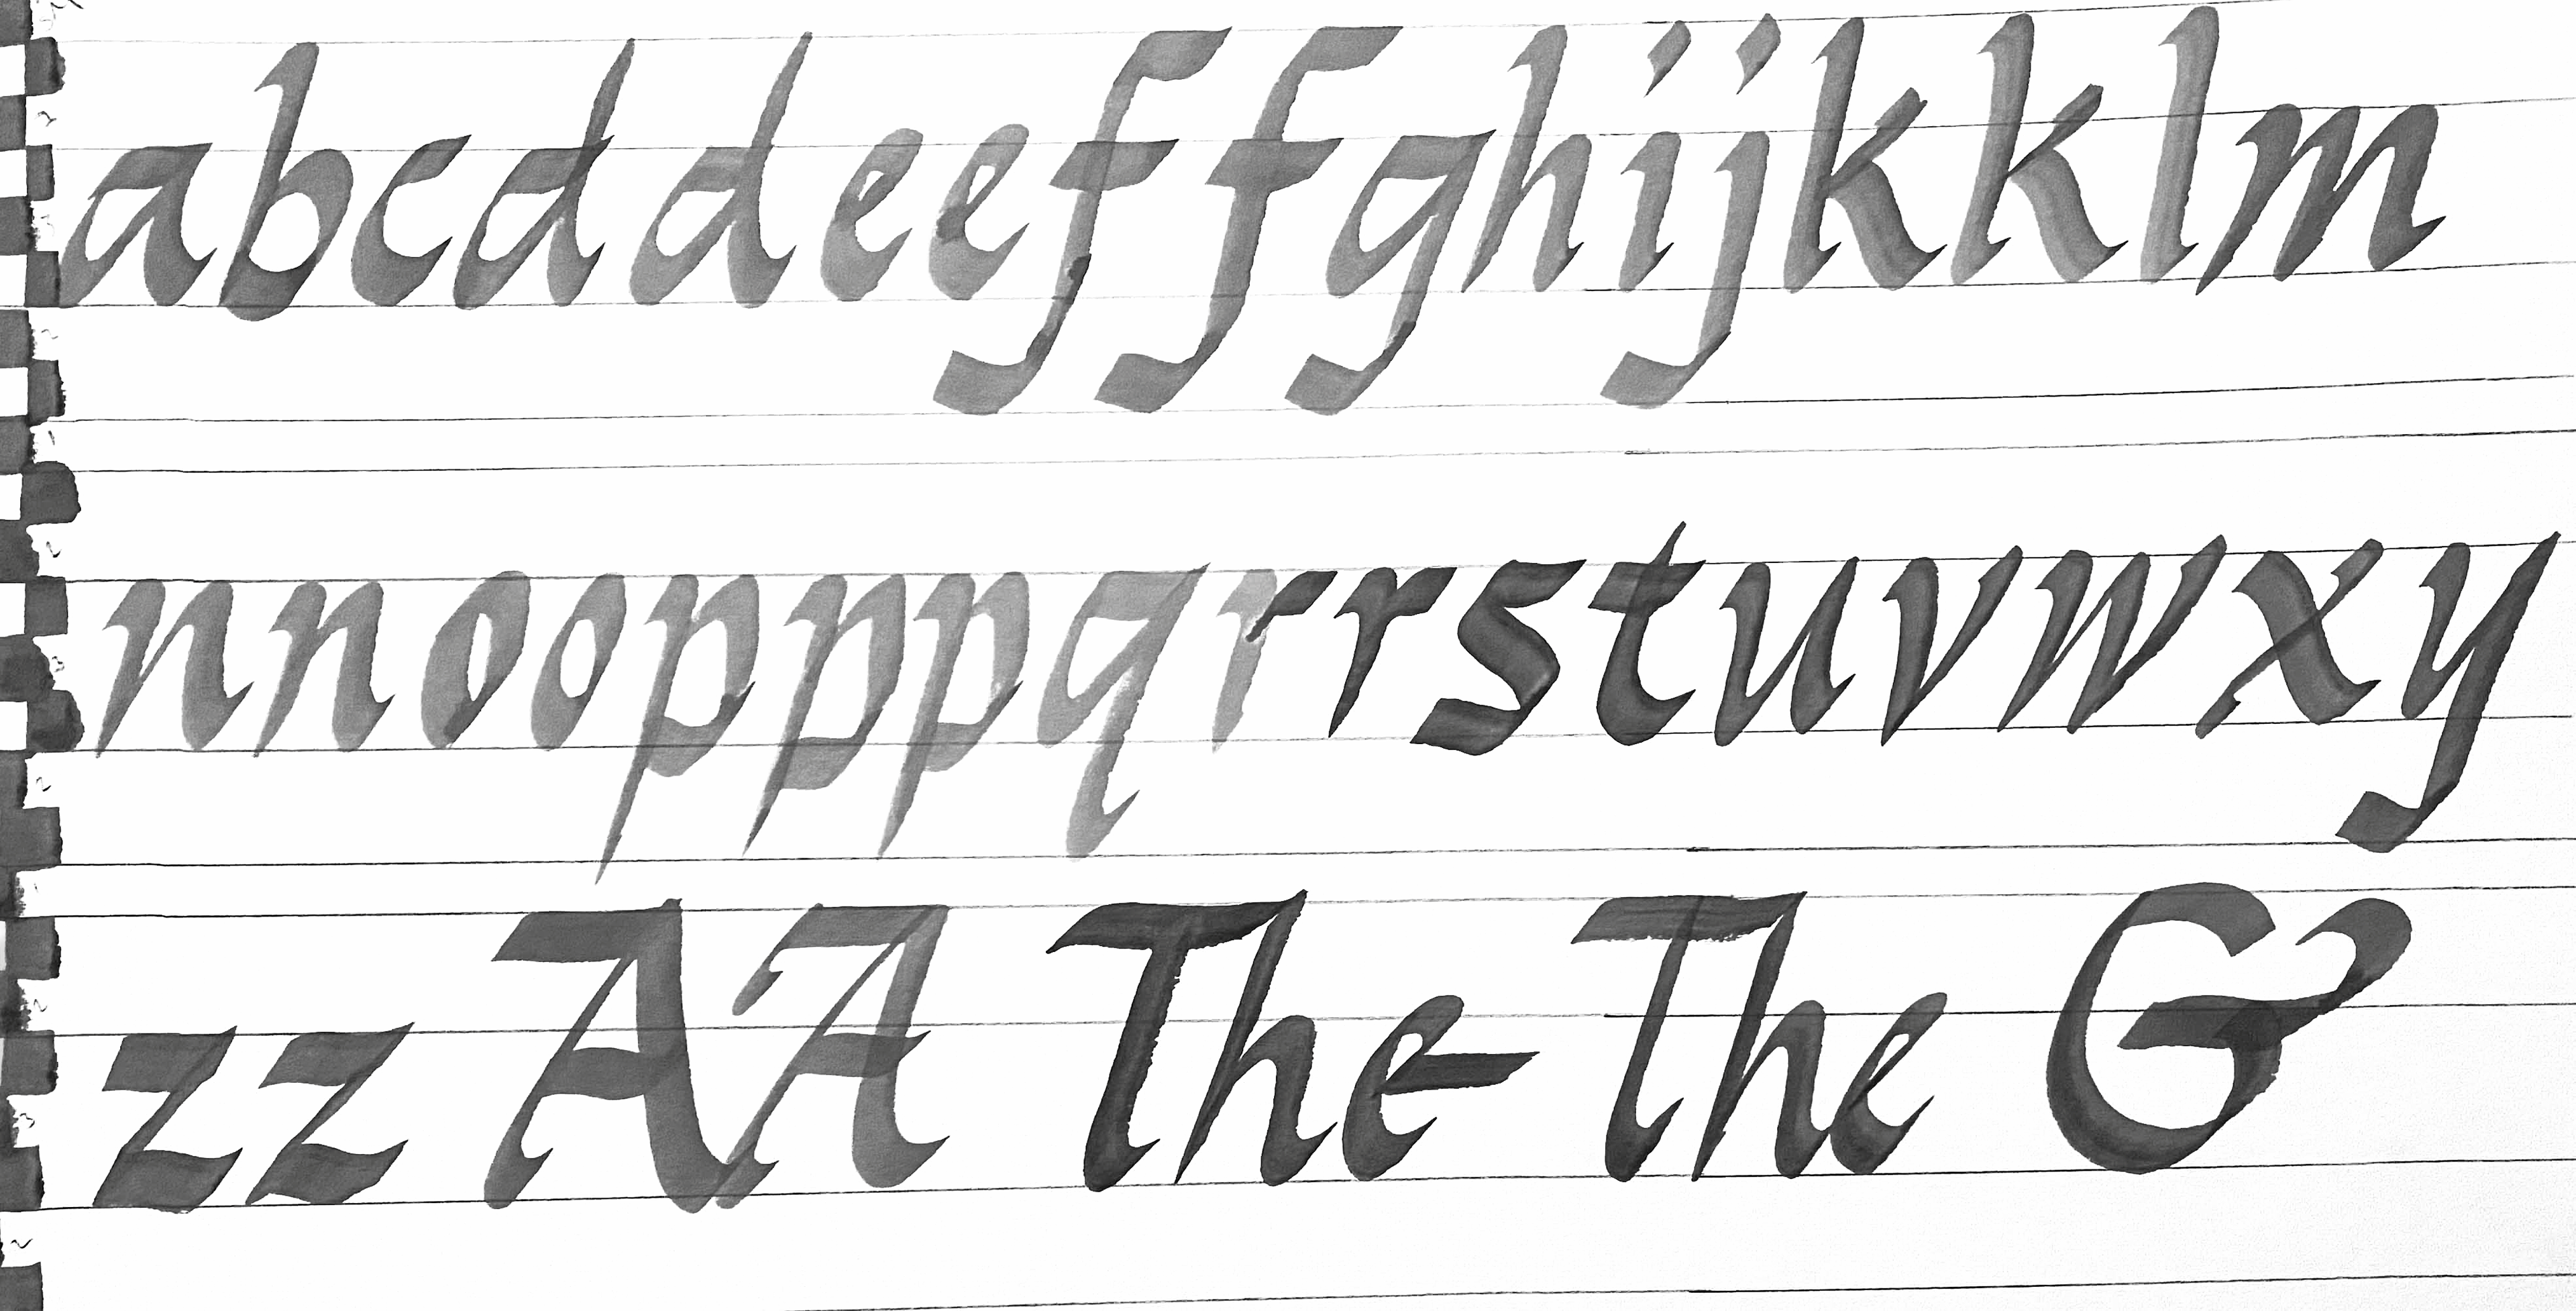 abcddeeffghijkklm
nnoopppqrrstuvwxy
zz AA The The G